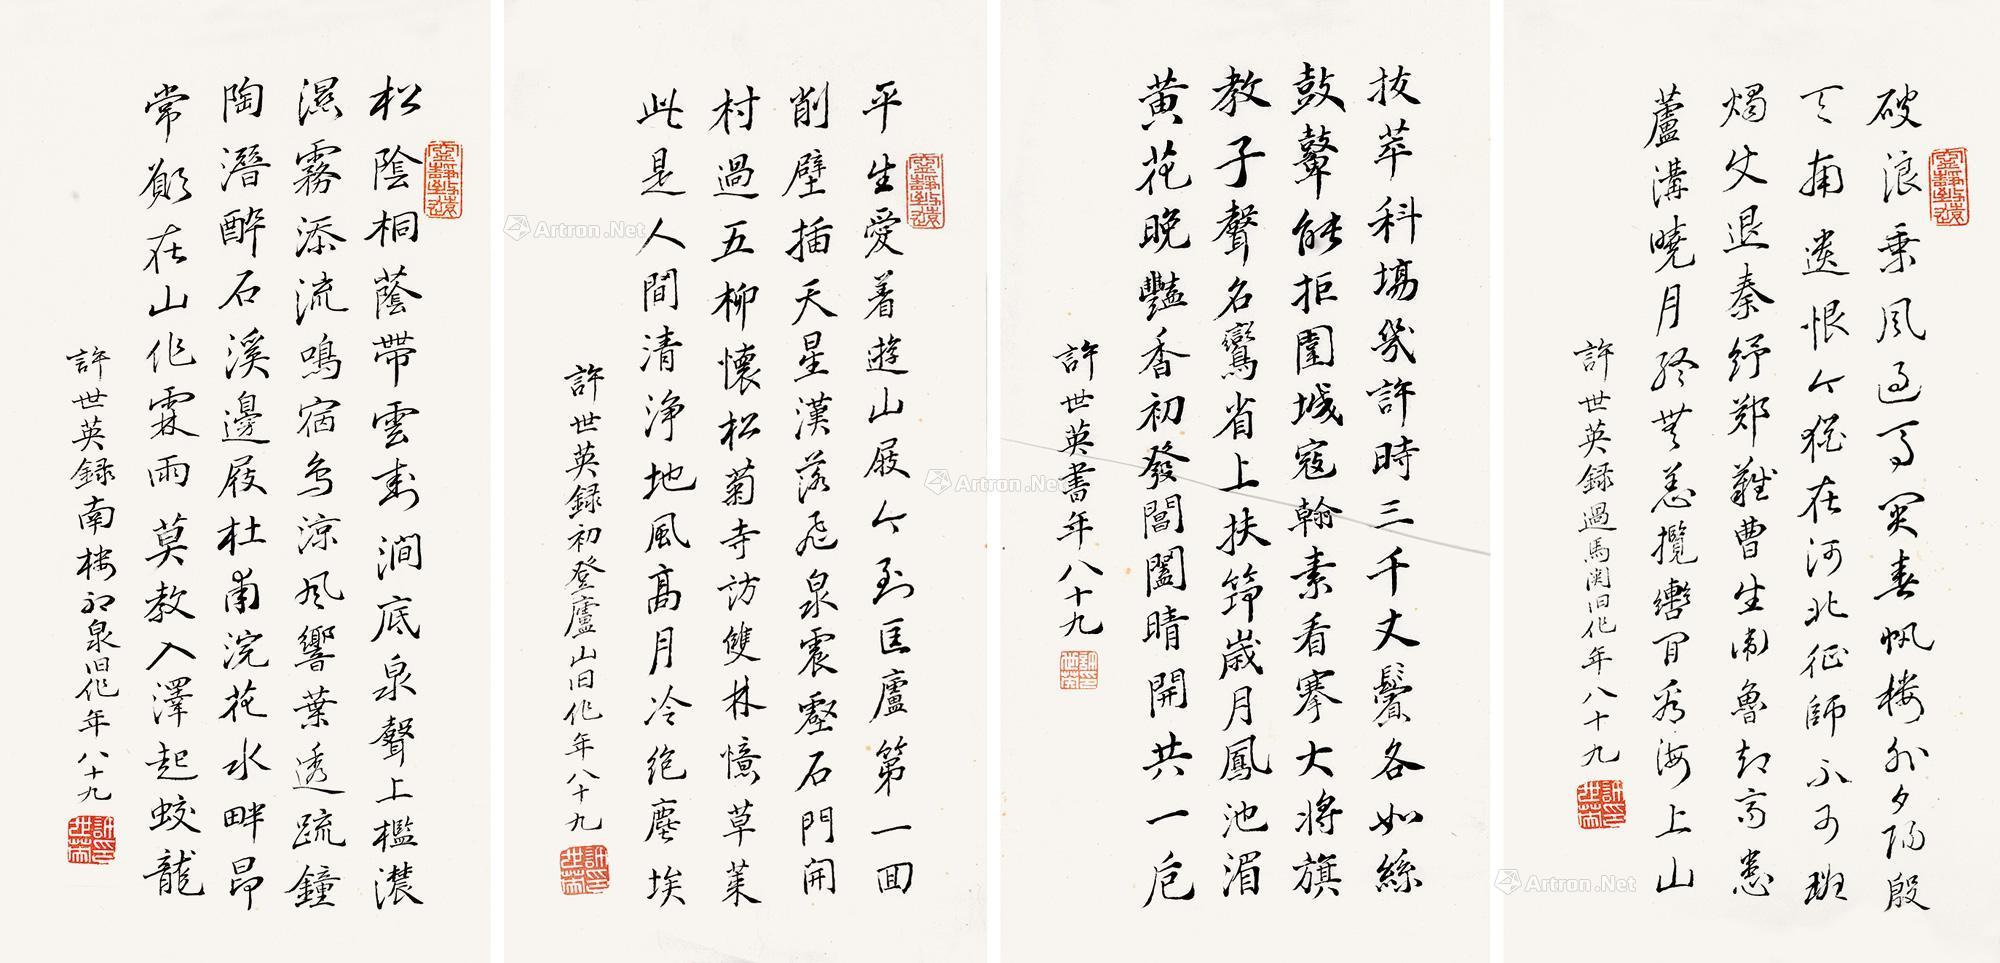 破浪乘風過馬關春帆樓外夕陽殷
天南遺恨今猶在河北征師不可班
燭退秦紓鄭難曹生衛魯却齊患
蘆溝曉月終無恙攬轡閒看海上山
許世英録過馬関旧作年八十九
抜萃科場幾許時三千丈鬢各如絲
鼓鼙能拒圍城寇翰素看搴大將旗
教子聲名鸞省上扶笻歲月鳳池湄
黄花晚豔香初發閶闔晴開共一卮
許世英書年八十九
平生愛着遊山屐今到匡廬第一回
削壁插天星漢落飛泉震壑石門開
村過五柳懷松菊寺訪雙林憶草萊
此是人間清淨地風高月冷絶塵埃
許世英録初登廬山旧作年八十九
松陰桐蔭帶雲封澗底泉聲上檻濃
濕霧添流鳴宿鳥涼風響葉透疏鐘
陶潛醉石溪邊屐杜甫浣花水畔
常願在山作霖雨莫教入澤起蛟龍
許世英録南樓泉旧作年八十九
寧靜致遠
許世英印
Artron.Net